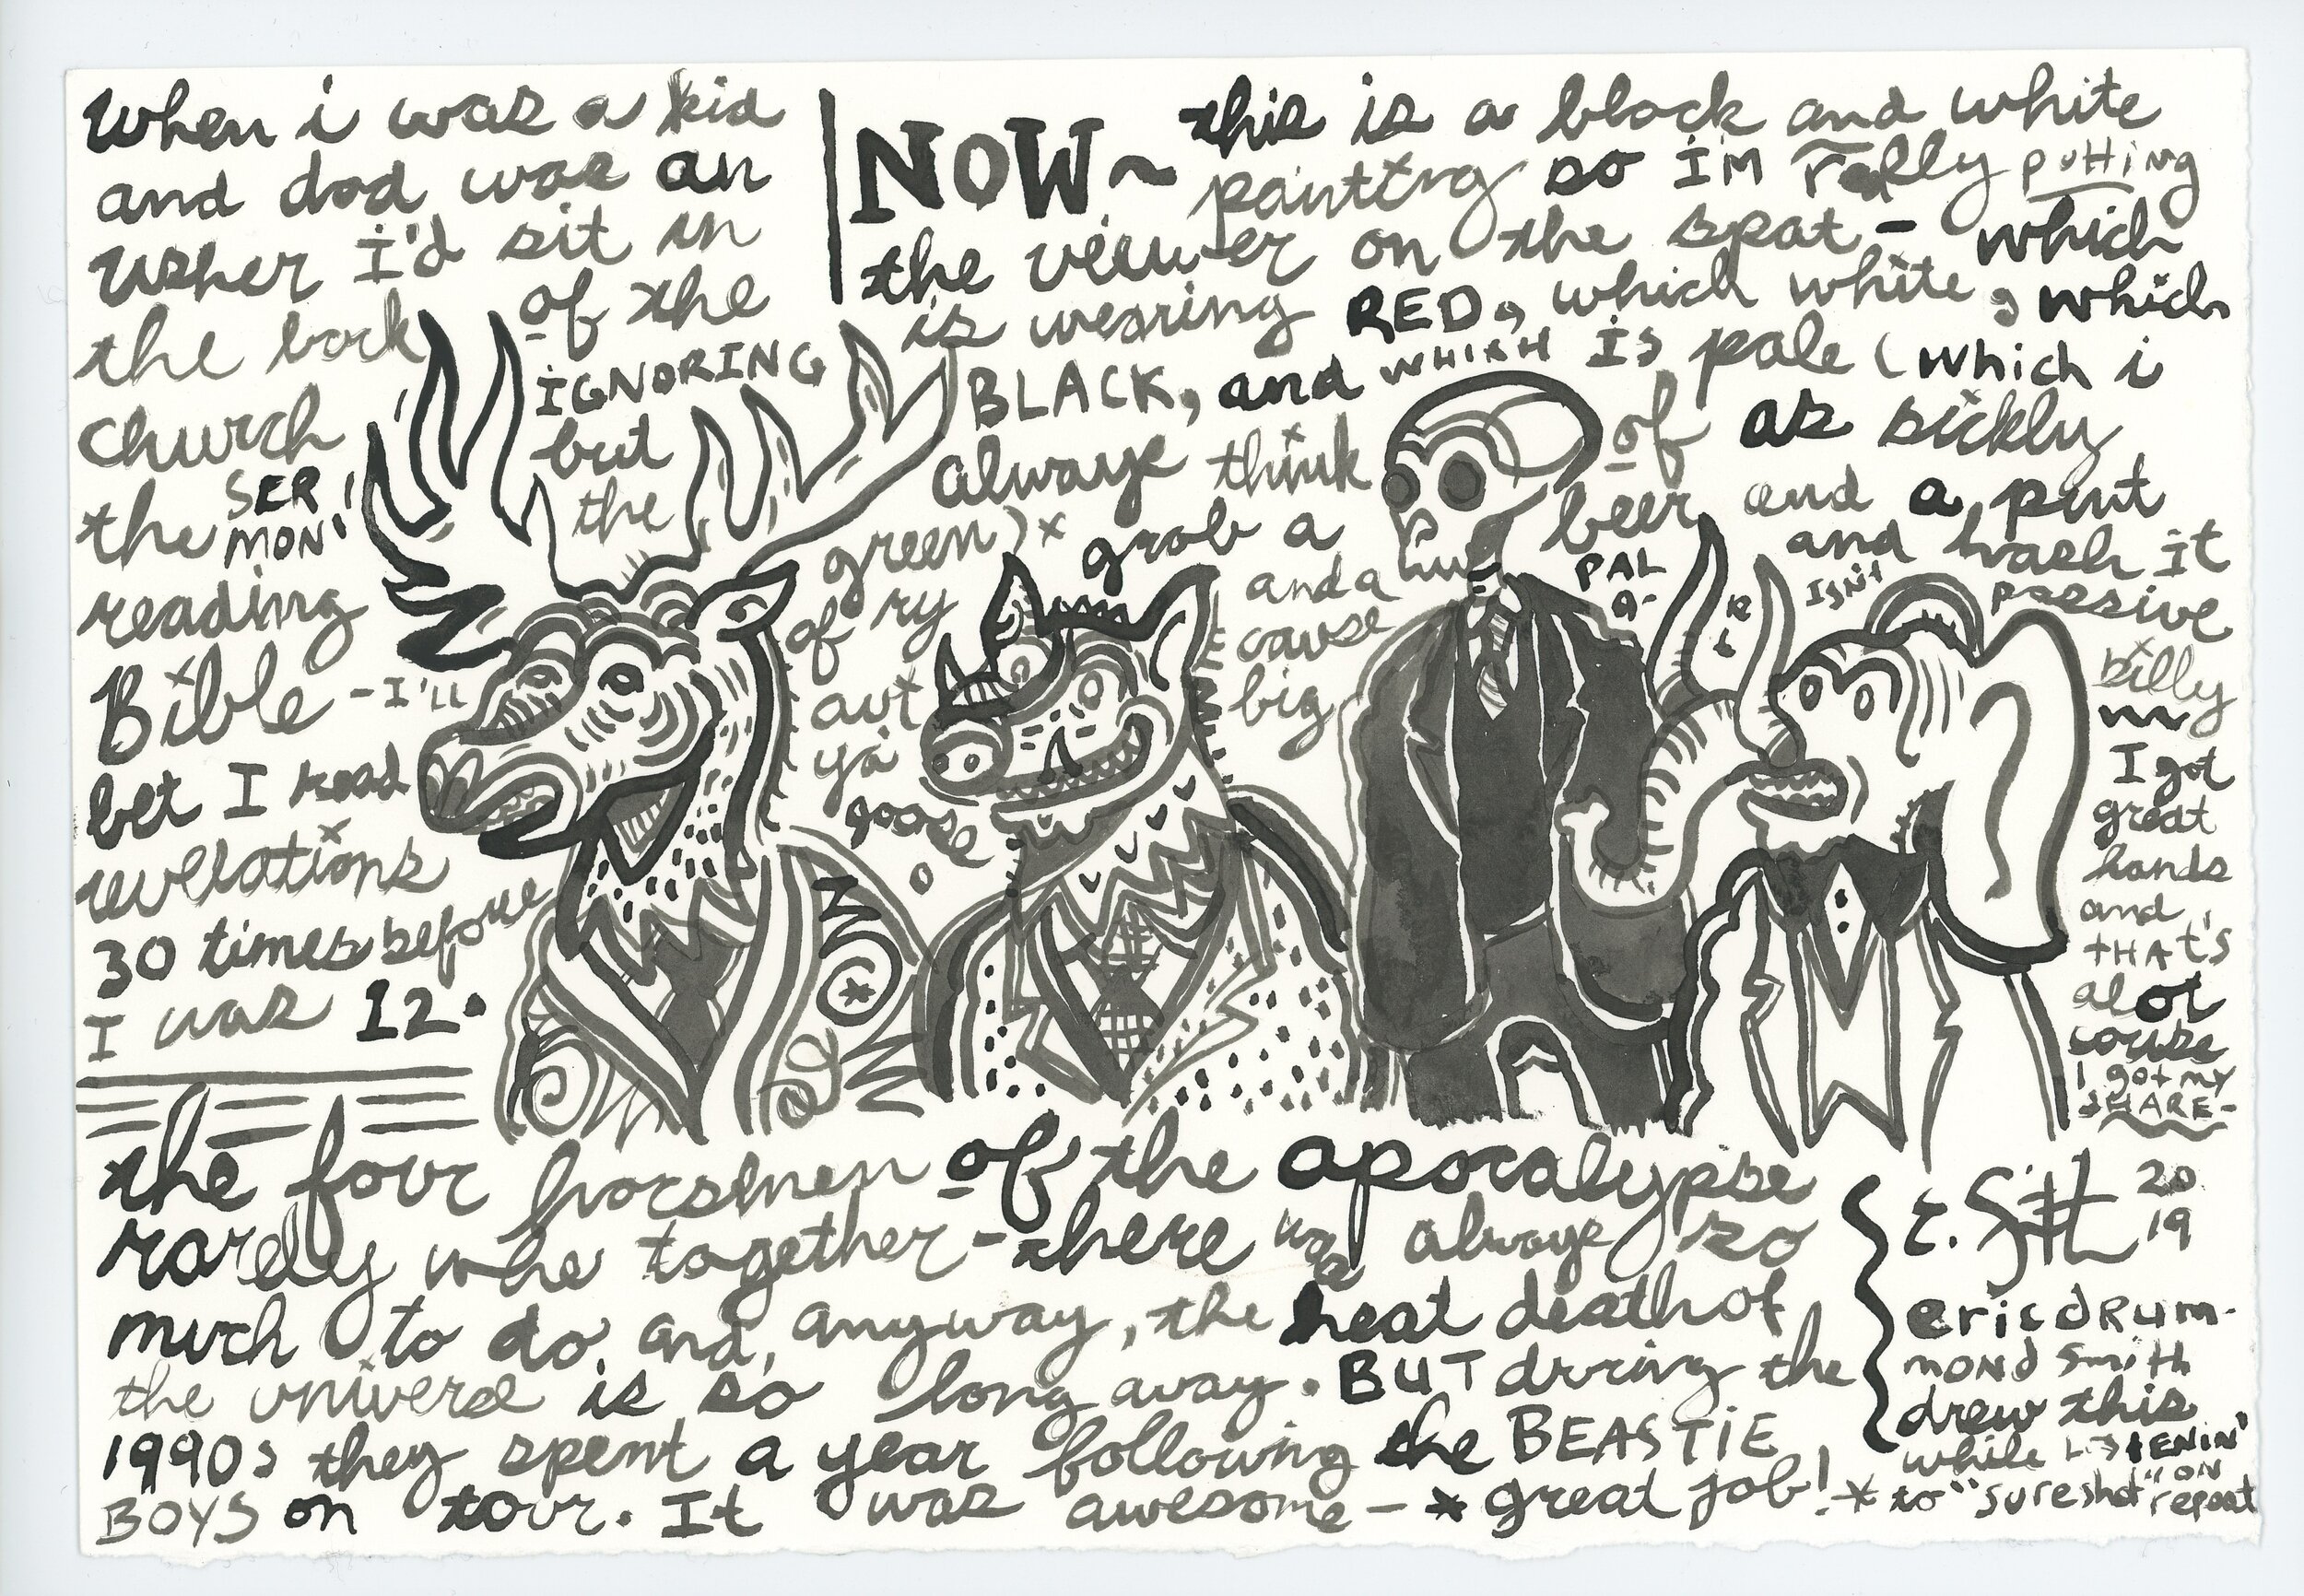 When i was a kid
and dad was an
usher i'd sit in
the back of the
church IGNORING
the SERMON' but the
reading
Bible - I'll
bet I read
revelations
30 times before
I was 12.
NOW~ this is a black and white
painting so I'M really putting
the viewer on the spot - which
is wearing RED, which white, which
BLACK, and WHICH is pale (which i
always think of as sickly
green) x grab a beer and a pint
of ry and a PAL and hash it
out cause ISN't passive
ya big billy
goose
I got
great
hands
and
THAT'S
alot
course
I got my
SHARE-
the four horsmen of the apocalypse
rarely whe together - there was always so
much to do, and, anyway, the heat death of
the universe is so long away. BUT during the
1990s they spent a year following the BEASTIE
BOYS on tour. It was awesome - * great job! *
E. Smith 20
19
eric dRum-
mond Smith
drew this
while LISTENIN'
to "sureshot" ON
repeat